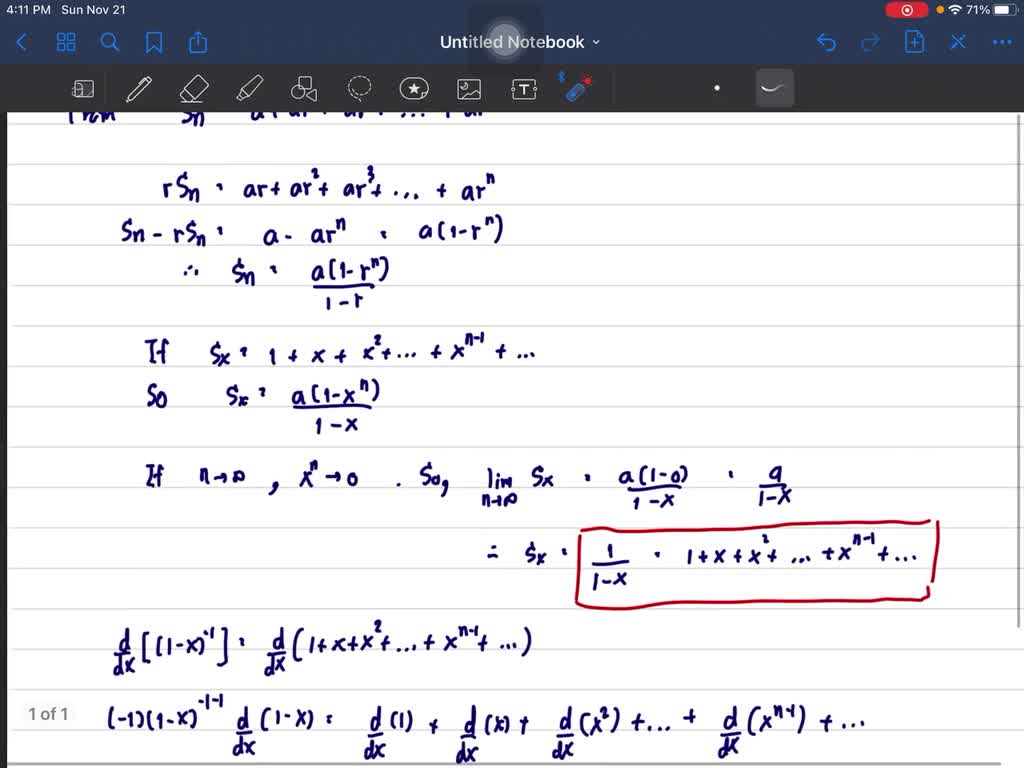 4:11 PM Sun Nov 21 71%
Untitled Notebook
rSn = ar + ar² + ar³ + ... + arⁿ
Sn - rSn = a - arⁿ = a(1-rⁿ)
∴ Sn = a(1-rⁿ)/1-r
If Sx = 1 + x + x² + ... + xⁿ⁻¹ + ...
So Sx = a(1-xⁿ)/1-x
If n→∞, xⁿ→0. So, lim n→∞ Sx = a(1-0)/1-x = a/1-x
= Sx = 1/1-x = 1+x+x²+ ... +xⁿ⁻¹+...
d/dx[(1-x)⁻¹] = d/dx(1+x+x²+...+xⁿ⁻¹+...)
(-1)(1-x)⁻¹⁻¹ d/dx(1-x) = d/dx(1) + d/dx(x) + d/dx(x²) +...+ d/dx(xⁿ⁻¹) + ...
1 of 1